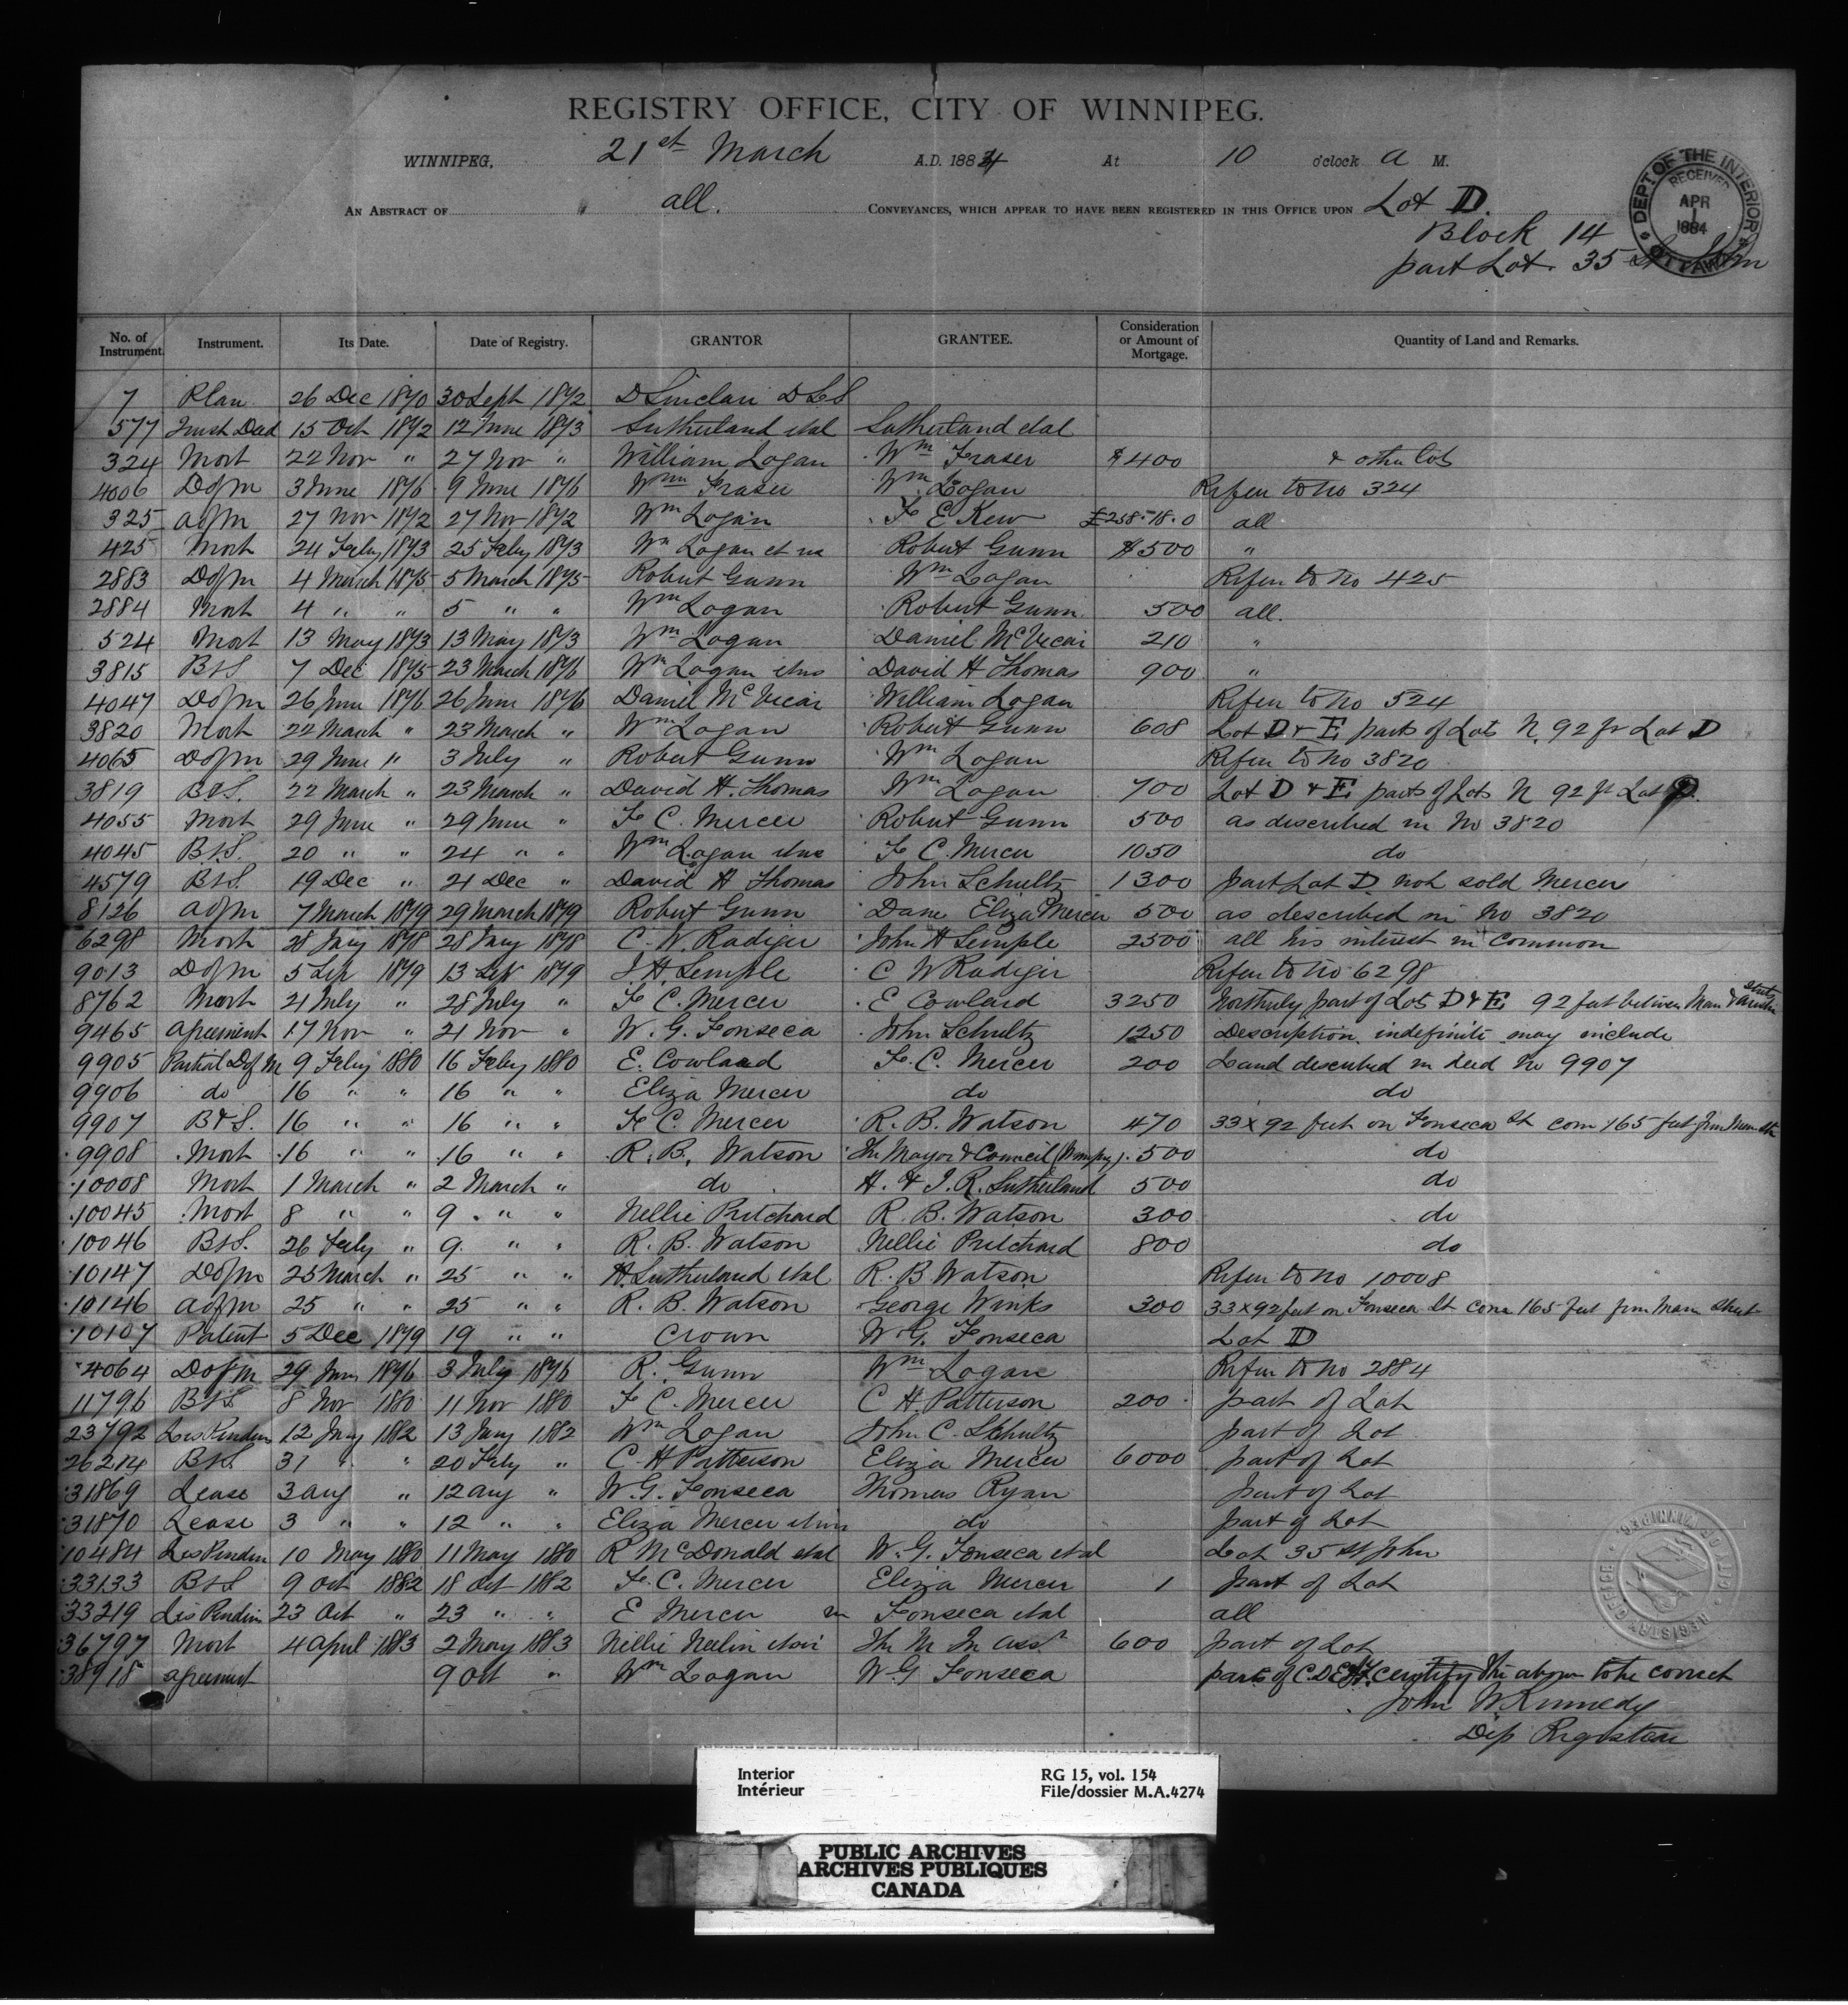 REGISTRY OFFICE, CITY OF WINNIPEG.
WINNIPEG, 21st March A.D. 1884 At 10 o'clock A M.
AN ABSTRACT OF all. CONVEYANCES, WHICH APPEAR TO HAVE BEEN REGISTERED IN THIS OFFICE UPON Lot D.
Block 14
part Lot. 35 St John
DEPT OF THE INTERIOR RECEIVED APR 1 1884 OTTAWA
No. of Instrument. Instrument. Its Date. Date of Registry. GRANTOR GRANTEE. Consideration or Amount of Mortgage. Quantity of Land and Remarks.
7 Plan 26 Dec 1870 30 Sept 1872 D Sinclair DLS
577 Trust Deed 15 Oct 1872 12 June 1873 Sutherland etal Sutherland etal
324 Mort 22 Nov " 27 Nov " William Logan Wm Fraser $400 & other lots
4006 DofM 3 June 1876 9 June 1876 Wm Fraser Wm Logan Refer to No 324
325 aofm 27 Nov 1872 27 Nov 1872 Wm Logan F E Kew £258.18.0 all
425 Mort 24 Feby 1873 25 Feby 1873 Wm Logan et ux Robert Gunn $500 "
2883 Dofm 4 March 1875 5 March 1875 Robert Gunn Wm Logan Refer to No 425
2884 Mort 4 " " 5 " " Wm Logan Robert Gunn 500 all.
524 Mort 13 May 1873 13 May 1873 Wm Logan Daniel McVicar 210 "
3815 B&S 7 Dec 1875 23 March 1876 Wm Logan etux David H Thomas 900 "
4047 Dofm 26 June 1876 26 June 1876 Daniel McVicar William Logan Refer to No 524
3820 Mort 22 March " 23 March " Wm Logan Robert Gunn 608 Lot D & E parts of Lots N. 92 ft Lot D
4065 Dofm 29 June " 3 July " Robert Gunn Wm Logan Refer to No 3820
3819 B&S. 22 March " 23 March " David H. Thomas Wm Logan 700 Lot D & E parts of Lots N 92 ft Lot D.
4055 Mort 29 June " 29 June " F C. Mercer Robert Gunn 500 as described in No 3820
4045 B&S. 20 " " 24 " " Wm Logan etux F C. Mercer 1050 do
4579 B&S. 19 Dec " 21 Dec " David H Thomas John Schultz 1300 part Lot D not sold Mercer
8126 aofm 7 March 1879 29 March 1879 Robert Gunn Dane Eliza Mercer 500 as described in No 3820
6298 Mort 28 Jany 1878 28 Jany 1878 C. W. Radiger John H Semple 2500 all his interest in common
9013 Dofm 5 Sep 1879 13 Sep 1879 J. H. Semple C W Radiger Refer to No 6298
8762 Mort 21 July " 28 July " F C. Mercer E Cowlard 3250 Northerly part of Lots D & E 92 feet between Main & Streets
9465 agreement 17 Nov " 21 Nov " W. G. Fonseca John Schultz 1250 Description indefinite may include
9905 Partial D of M 9 Feby 1880 16 Feby 1880 E. Cowlard F. C. Mercer 200 Land described in deed No 9907
9906 do 16 " " 16 " " Eliza Mercer do do
9907 B&S. 16 " " 16 " " F C. Mercer R. B. Watson 470 33 x 92 feet on Fonseca St com 165 feet from Main St
9908 Mort 16 " " 16 " " R. B. Watson The Mayor & Council (Winnipeg). 500 do
10008 Mort 1 March " 2 March " do H. & J. R. Sutherland 500 do
10045 Mort 8 " " 9 " " Nellie Pritchard R. B. Watson 300 do
10046 B&S. 26 Feby " 9. " " R. B. Watson Nellie Pritchard 800 do
10147 Dofm 25 March " 25 " " H. Sutherland etal R. B Watson Refer to No 10008
10146 aofm 25 " " 25 " " R. B. Watson George Winks 300 33 x 92 feet on Fonseca St com 165 feet from Main Street
10107 Patent 5 Dec 1879 19 " " Crown W. G. Fonseca Lot D
4064 Dofm 29 June 1876 3 July 1876 R. Gunn Wm Logan Refer to No 2884
11796 B&S 8 Nov 1880 11 Nov 1880 F C. Mercer C H. Patterson 200 part of Lot
23792 Lis Pendens 12 Jany 1882 13 Jany 1882 Wm Logan John C. Schultz part of Lot
26214 B&S. 31 " " 20 Feby " C. H Patterson Eliza Mercer 6000 part of Lot
31869 Lease 3 aug " 12 aug " W. G. Fonseca Thomas Ryan part of Lot
31870 Lease 3 " " 12 " " Eliza Mercer do part of Lot
10484 Lis Penden 10 May 1880 11 May 1880 R McDonald etal W. G. Fonseca etal Lot 35 St John
33133 B&S 9 Oct 1882 18 Oct 1882 F. C. Mercer Eliza Mercer 1 part of Lot
33219 Lis Penden 23 Oct " 23 " " E Mercer vs Fonseca etal all
36797 Mort 4 April 1883 2 May 1883 Nellie Neelin The M In Assn 600 part of Lot
38918 agreement 9 Oct " Wm Logan W G Fonseca parts of C. D E & F.
I certify the above to be correct
John W. Kennedy
Dep Registrar
REGISTRY OFFICE CITY OF WINNIPEG
Interior RG 15, vol. 154
Intérieur File/dossier M.A.4274
PUBLIC ARCHIVES
ARCHIVES PUBLIQUES
CANADA